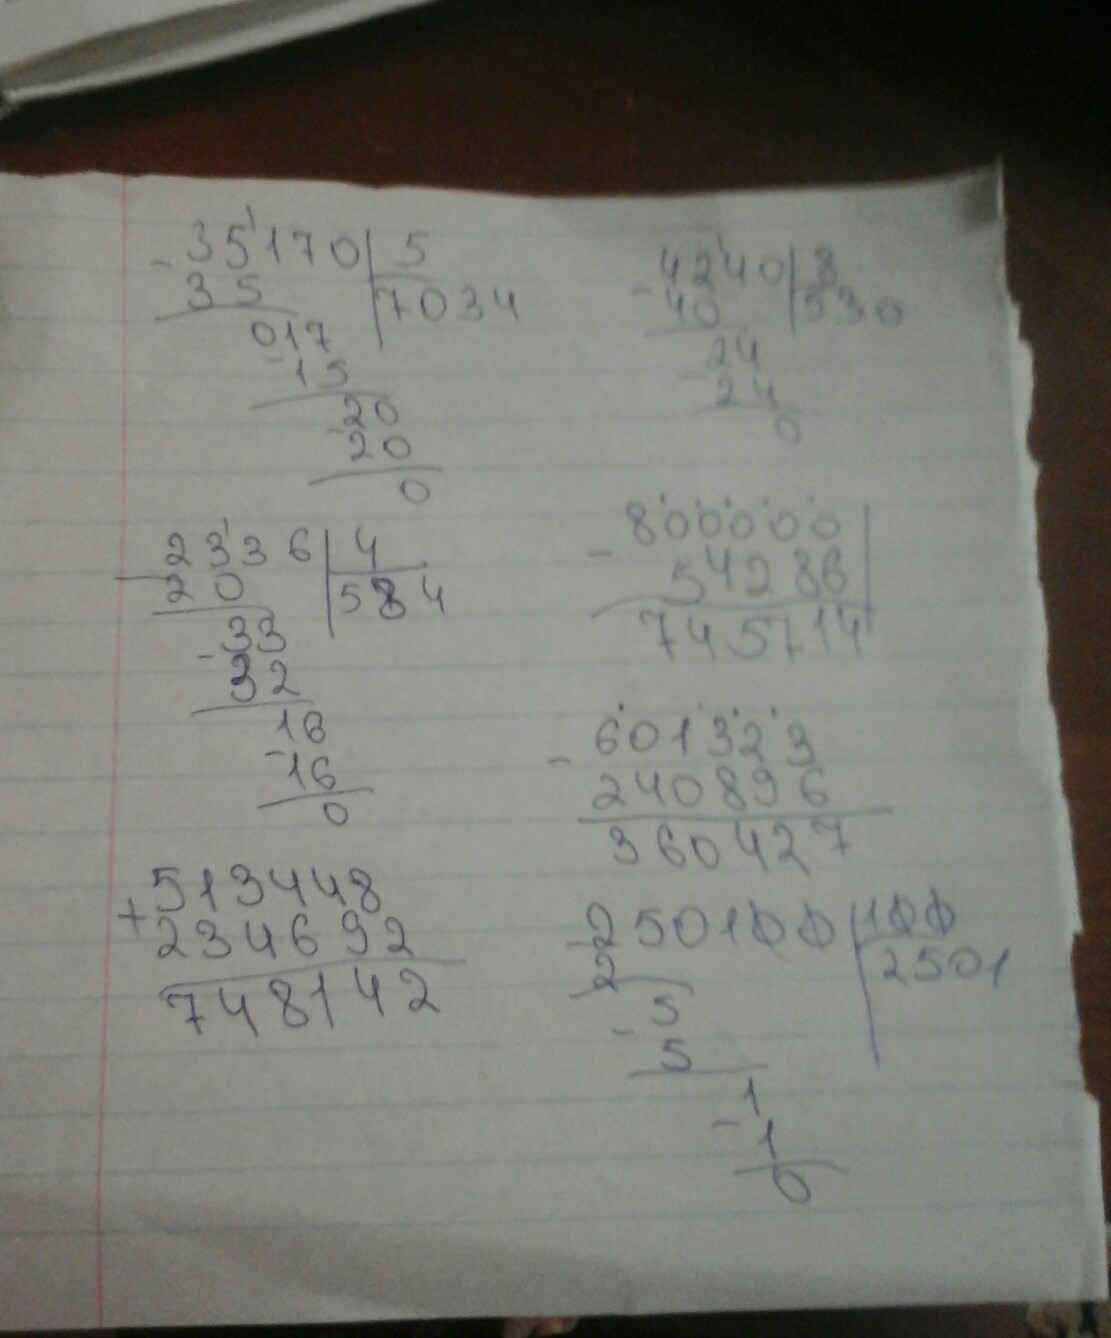 - 35170 | 5
35 | 7034
017
- 15
- 20
20
0
- 4240 | 8
40 | 530
24
- 24
0
- 2336 | 4
20 | 584
- 33
32
16
- 16
0
- 800000
54286
745714
- 601323
240896
360427
+ 513448
234692
748142
- 250100 | 100
2 | 2501
5
- 5
1
- 1
0